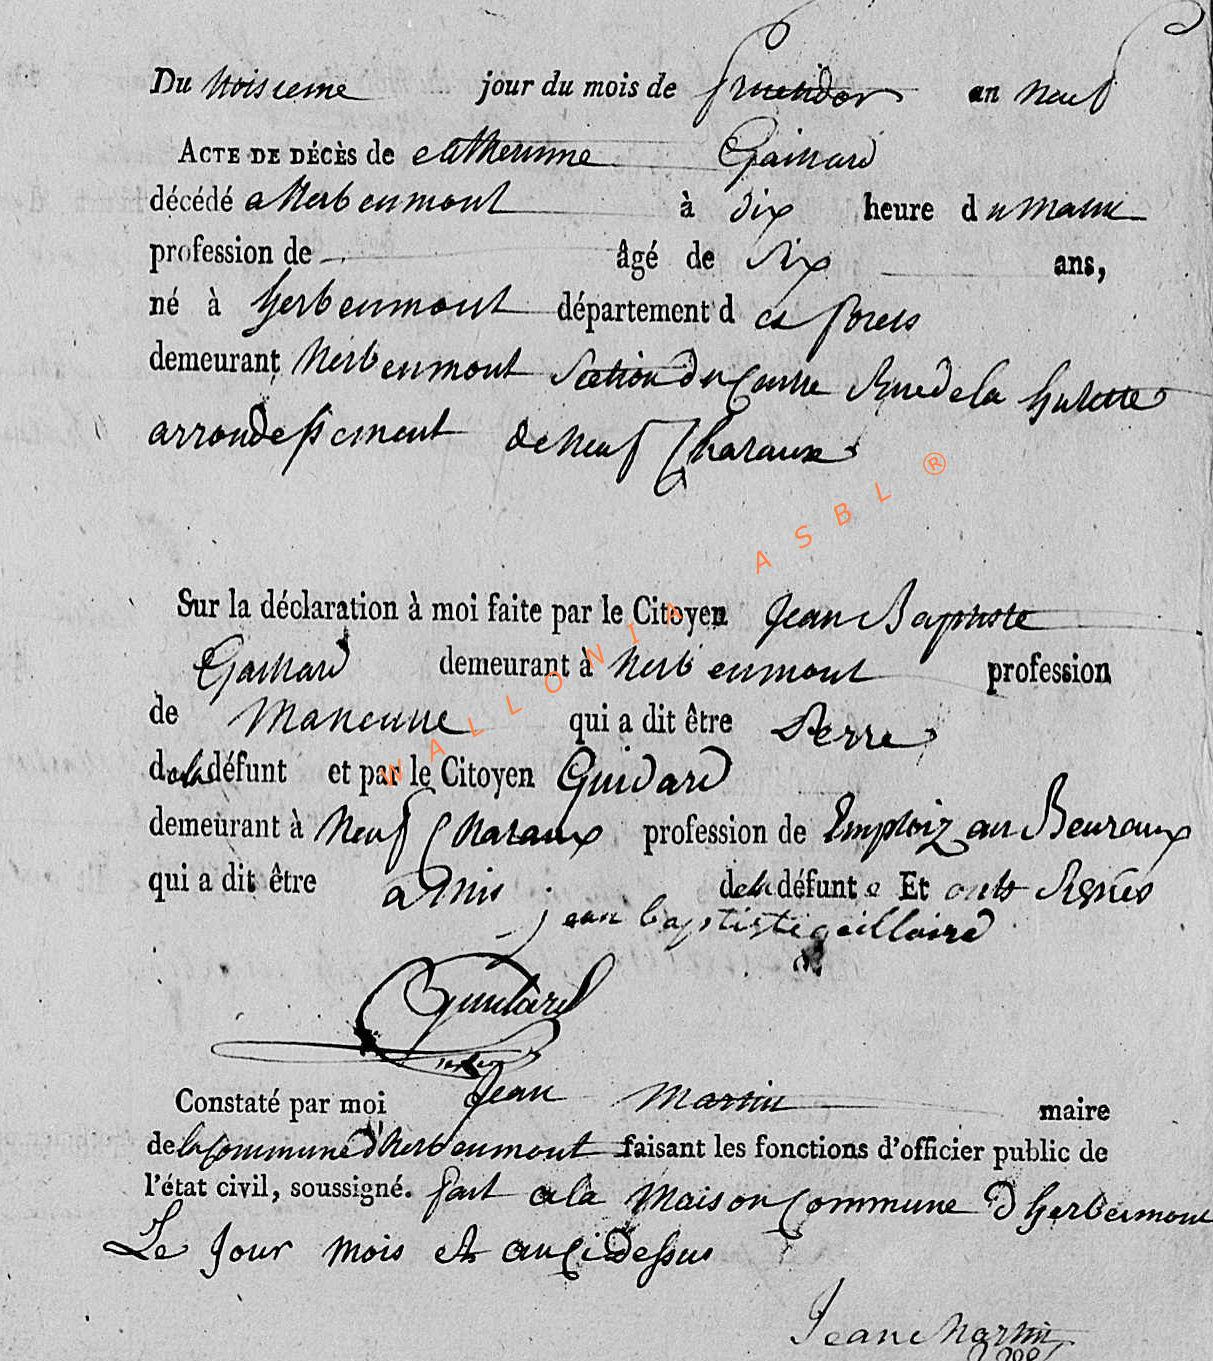 Du troisieme jour du mois de fructidor an neuf
ACTE DE DÉCÈS de catherinne Gaillard
décédé a herbeumont à dix heure du matin
profession de — âgé de six ans,
né à herbeumont département des forets
demeurant herbeumont Section du Centre Rue de la hulette
arrondessement de neuf Charaux
Sur la déclaration à moi faite par le Citoyen Jean Baptiste
Gaillard demeurant à herbeumont profession
de qui a dit être Perre
de la défunt et par le Citoyen Guidard
demeurant à neuf Charaux profession de Emploiz au Beuraux
qui a dit être amis de la défunte Et onts Signés
jean baptiste gaillaird
Guidard
Constaté par moi Jean Martin maire
de la Commune d'herbeumont faisant les fonctions d'officier public de
l'état civil, soussigné. fait a la Maison Commune D herbeumont
Le Jour mois et an Ci Dessus
Jean Martin
WALLONIA ASBL ®